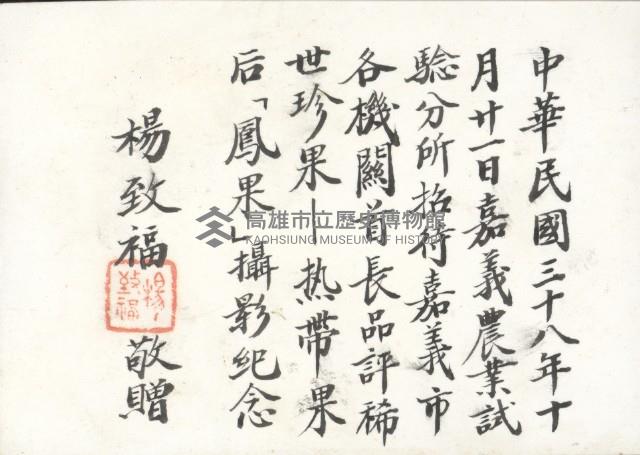 中華民國三十八年十
月廿一日嘉義農業試
驗分所招待嘉義市
各機關首長品評稀
世珍果—热帶果
后「鳳果」攝影紀念
楊致福 敬贈
楊致福
高雄市立歷史博物館
KAOHSIUNG MUSEUM OF HISTORY